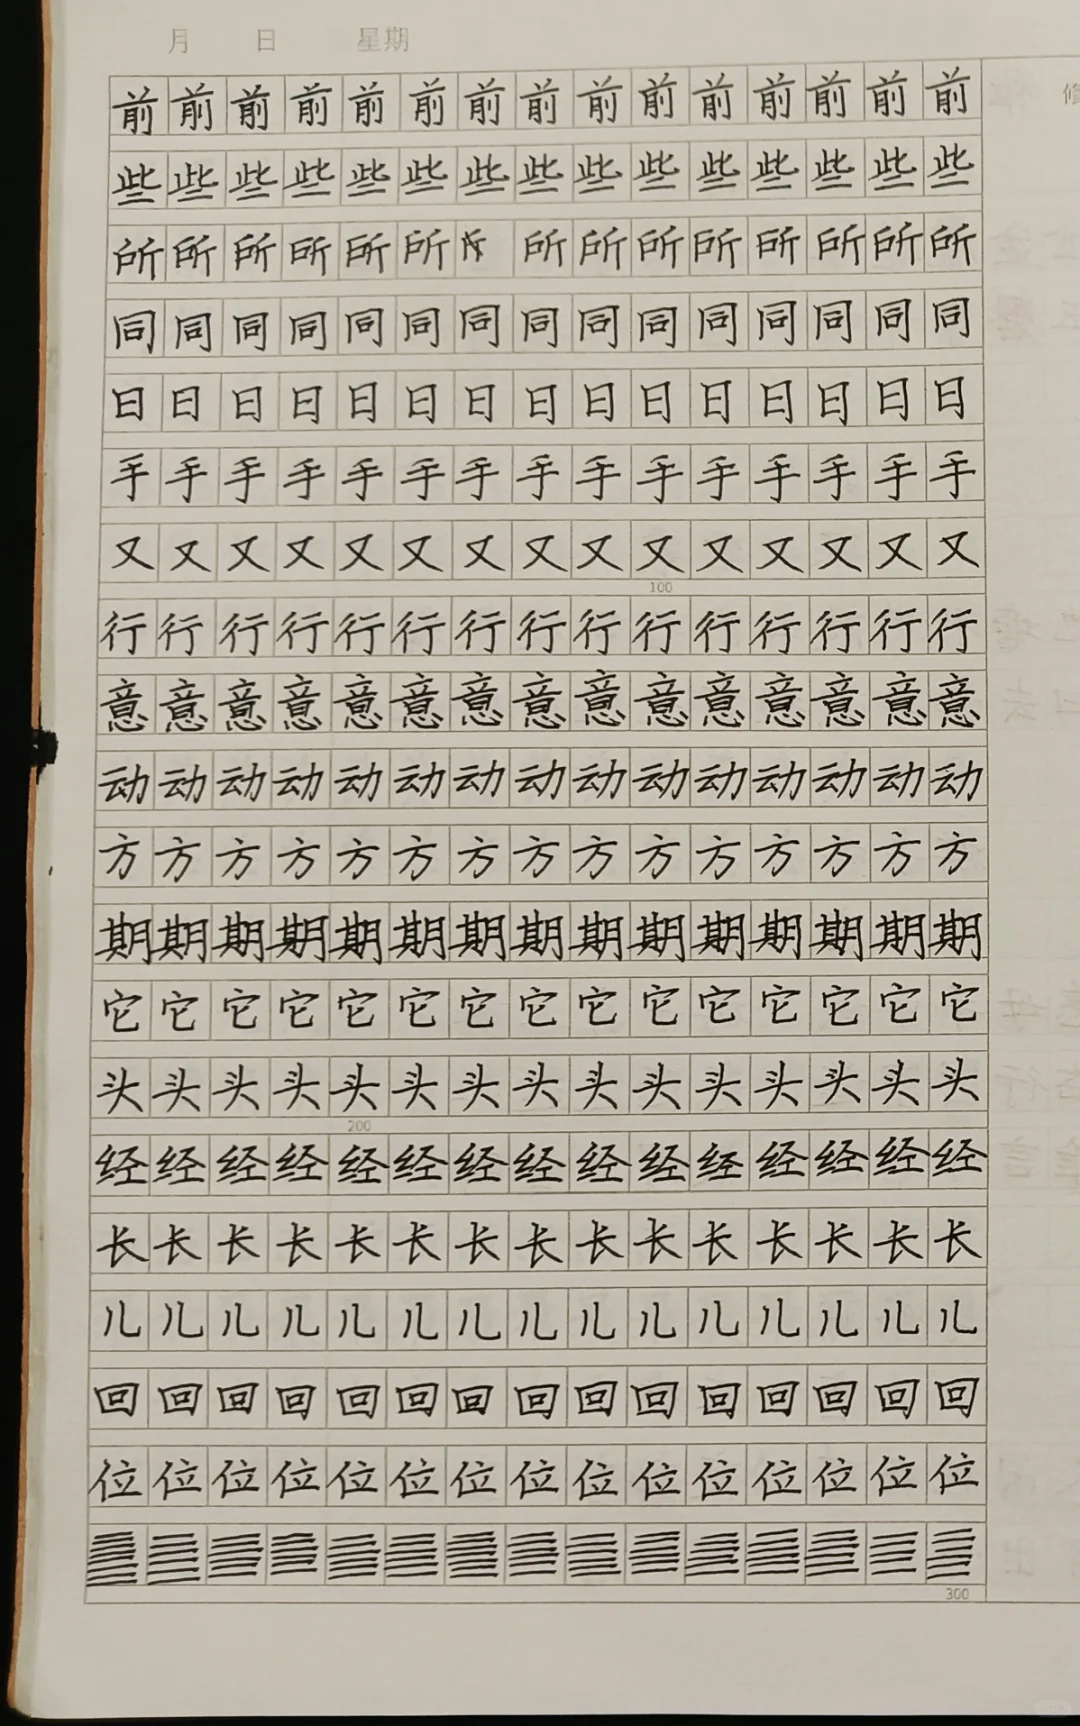 月 日 星期
前前前前前前前前前前前前前前前
些些些些些些些些些些些些些些些
所所所所所所 所所所所所所所所
同同同同同同同同同同同同同同同
日日日日日日日日日日日日日日日
手手手手手手手手手手手手手手手
又又又又又又又又又又又又又又又
100
行行行行行行行行行行行行行行行
意意意意意意意意意意意意意意意
动动动动动动动动动动动动动动动
方方方方方方方方方方方方方方方
期期期期期期期期期期期期期期期
它它它它它它它它它它它它它它它
头头头头头头头头头头头头头头头
200
经经经经经经经经经经经经经经经
长长长长长长长长长长长长长长长
儿儿儿儿儿儿儿儿儿儿儿儿儿儿儿
回回回回回回回回回回回回回回回
位位位位位位位位位位位位位位位
300